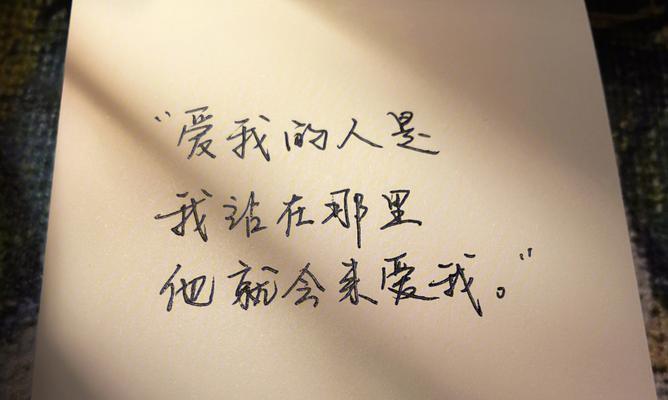 “爱我的人是
我站在那里
他就会来爱我。”